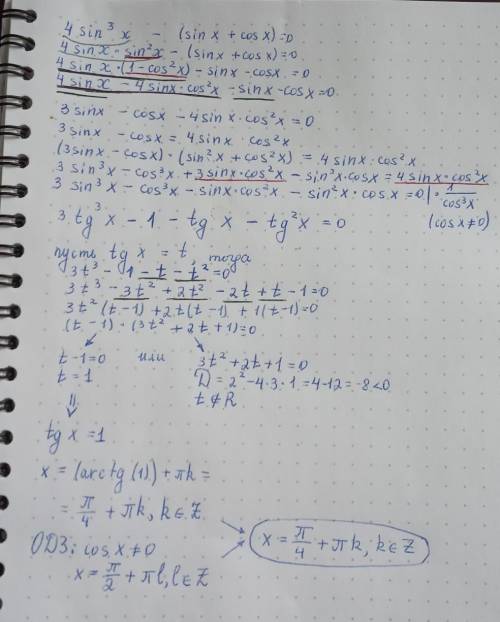 4 sin³ x - (sin x + cos x) = 0
4 sin x · sin² x - (sin x + cos x) = 0
4 sin x · (1 - cos² x) - sin x - cos x = 0
4 sin x - 4 sin x · cos² x - sin x - cos x = 0
3 sin x - cos x - 4 sin x · cos² x = 0
3 sin x - cos x = 4 sin x cos² x
(3 sin x - cos x) · (sin² x + cos² x) = 4 sin x · cos² x
3 sin³ x - cos³ x + 3 sin x · cos² x - sin² x · cos x = 4 sin x · cos² x
3 sin³ x - cos³ x - sin x · cos² x - sin² x · cos x = 0 | · 1/cos³ x
(cos x ≠ 0)
3 tg³ x - 1 - tg x - tg² x = 0
пусть tg x = t тогда
3t³ - 1 - t - t² = 0
3t³ - 3t² + 2t² - 2t + t - 1 = 0
3t² (t - 1) + 2t (t - 1) + 1(t - 1) = 0
(t - 1) · (3t² + 2t + 1) = 0
t - 1 = 0 или 3t² + 2t + 1 = 0
t = 1 D = 2² - 4 · 3 · 1 = 4 - 12 = -8 < 0
t ∉ R
tg x = 1
x = (arctg (1)) + πk =
= π/4 + πk, k ∈ Z
ОДЗ: cos x ≠ 0
x = π/2 + πl, l ∈ Z
x = π/4 + πk, k ∈ Z